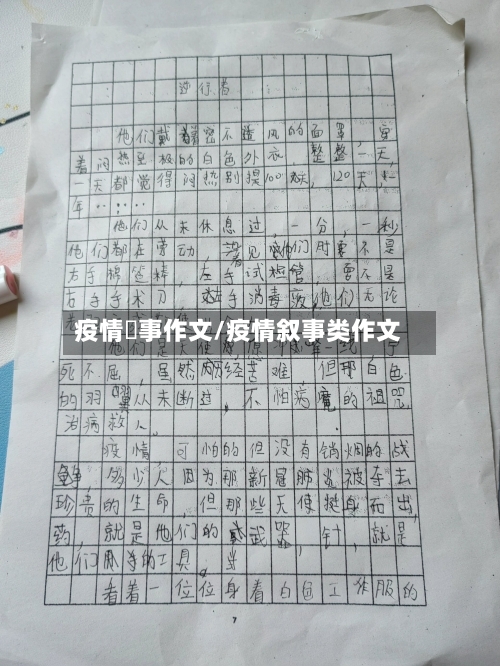 逆行者
他们戴着密不透风的面罩,穿
着闷热至极的白色外衣,整整一天,
一天都觉得闷热别提100天,120天,一
年……
他们从未休息过,一分,一秒
他们都在劳动,若见他们时要不是
右手棉签精,左手试械管,要不是
右手手术刀,左手消毒液,他们无论
疫情事作文/疫情叙事类作文
死不屈,虽然历经苦难,但那白色
的羽翼从未断过,不怕病魔的祖咒,
治病救人。
疫情,可怕的但没有销烟的战
争,多少人因为那新冠肺炎被夺去
珍贵的生命,但那些天使挺身而出,
药,就是他们的武器,针,就是
他们手的工具,
看着一位位身着白色工作服的
7